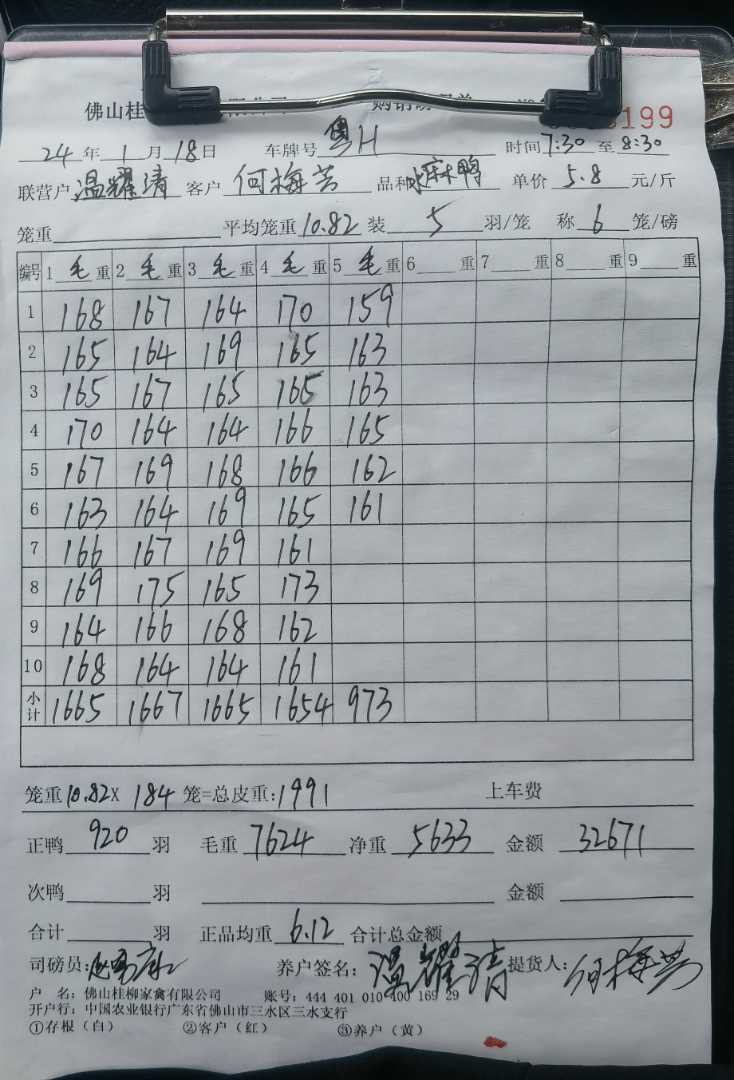 佛山桂 199
24 年 1 月 18 日 车牌号 粤H 时间 7:30 至 8:30
联营户 温耀清 客户 何梅芳 品种 水麻鸭 单价 5.8 元/斤
笼重 平均笼重 10.82 装 5 羽/笼 称 6 笼/磅
编号 1 毛 重 2 毛 重 3 毛 重 4 毛 重 5 毛 重 6 重 7 重 8 重 9 重
1 168 167 164 170 159
2 165 164 169 165 163
3 165 167 165 165 163
4 170 164 164 166 165
5 167 169 168 166 162
6 163 164 169 165 161
7 166 167 169 161
8 169 175 165 173
9 164 166 168 162
10 168 164 164 161
小计 1665 1667 1665 1654 973
笼重 10.82 X 184 笼=总皮重: 1991 上车费
正鸭 920 羽 毛重 7624 净重 5633 金额 32671
次鸭 羽 金额
合计 羽 正品均重 6.12 合计总金额
司磅员: 养户签名: 温耀清 提货人: 何梅芳
户 名: 佛山桂柳家禽有限公司 账号: 444 401 010 400 169 29
开户行: 中国农业银行广东省佛山市三水区三水支行
①存根（白） ②客户（红） ③养户（黄）